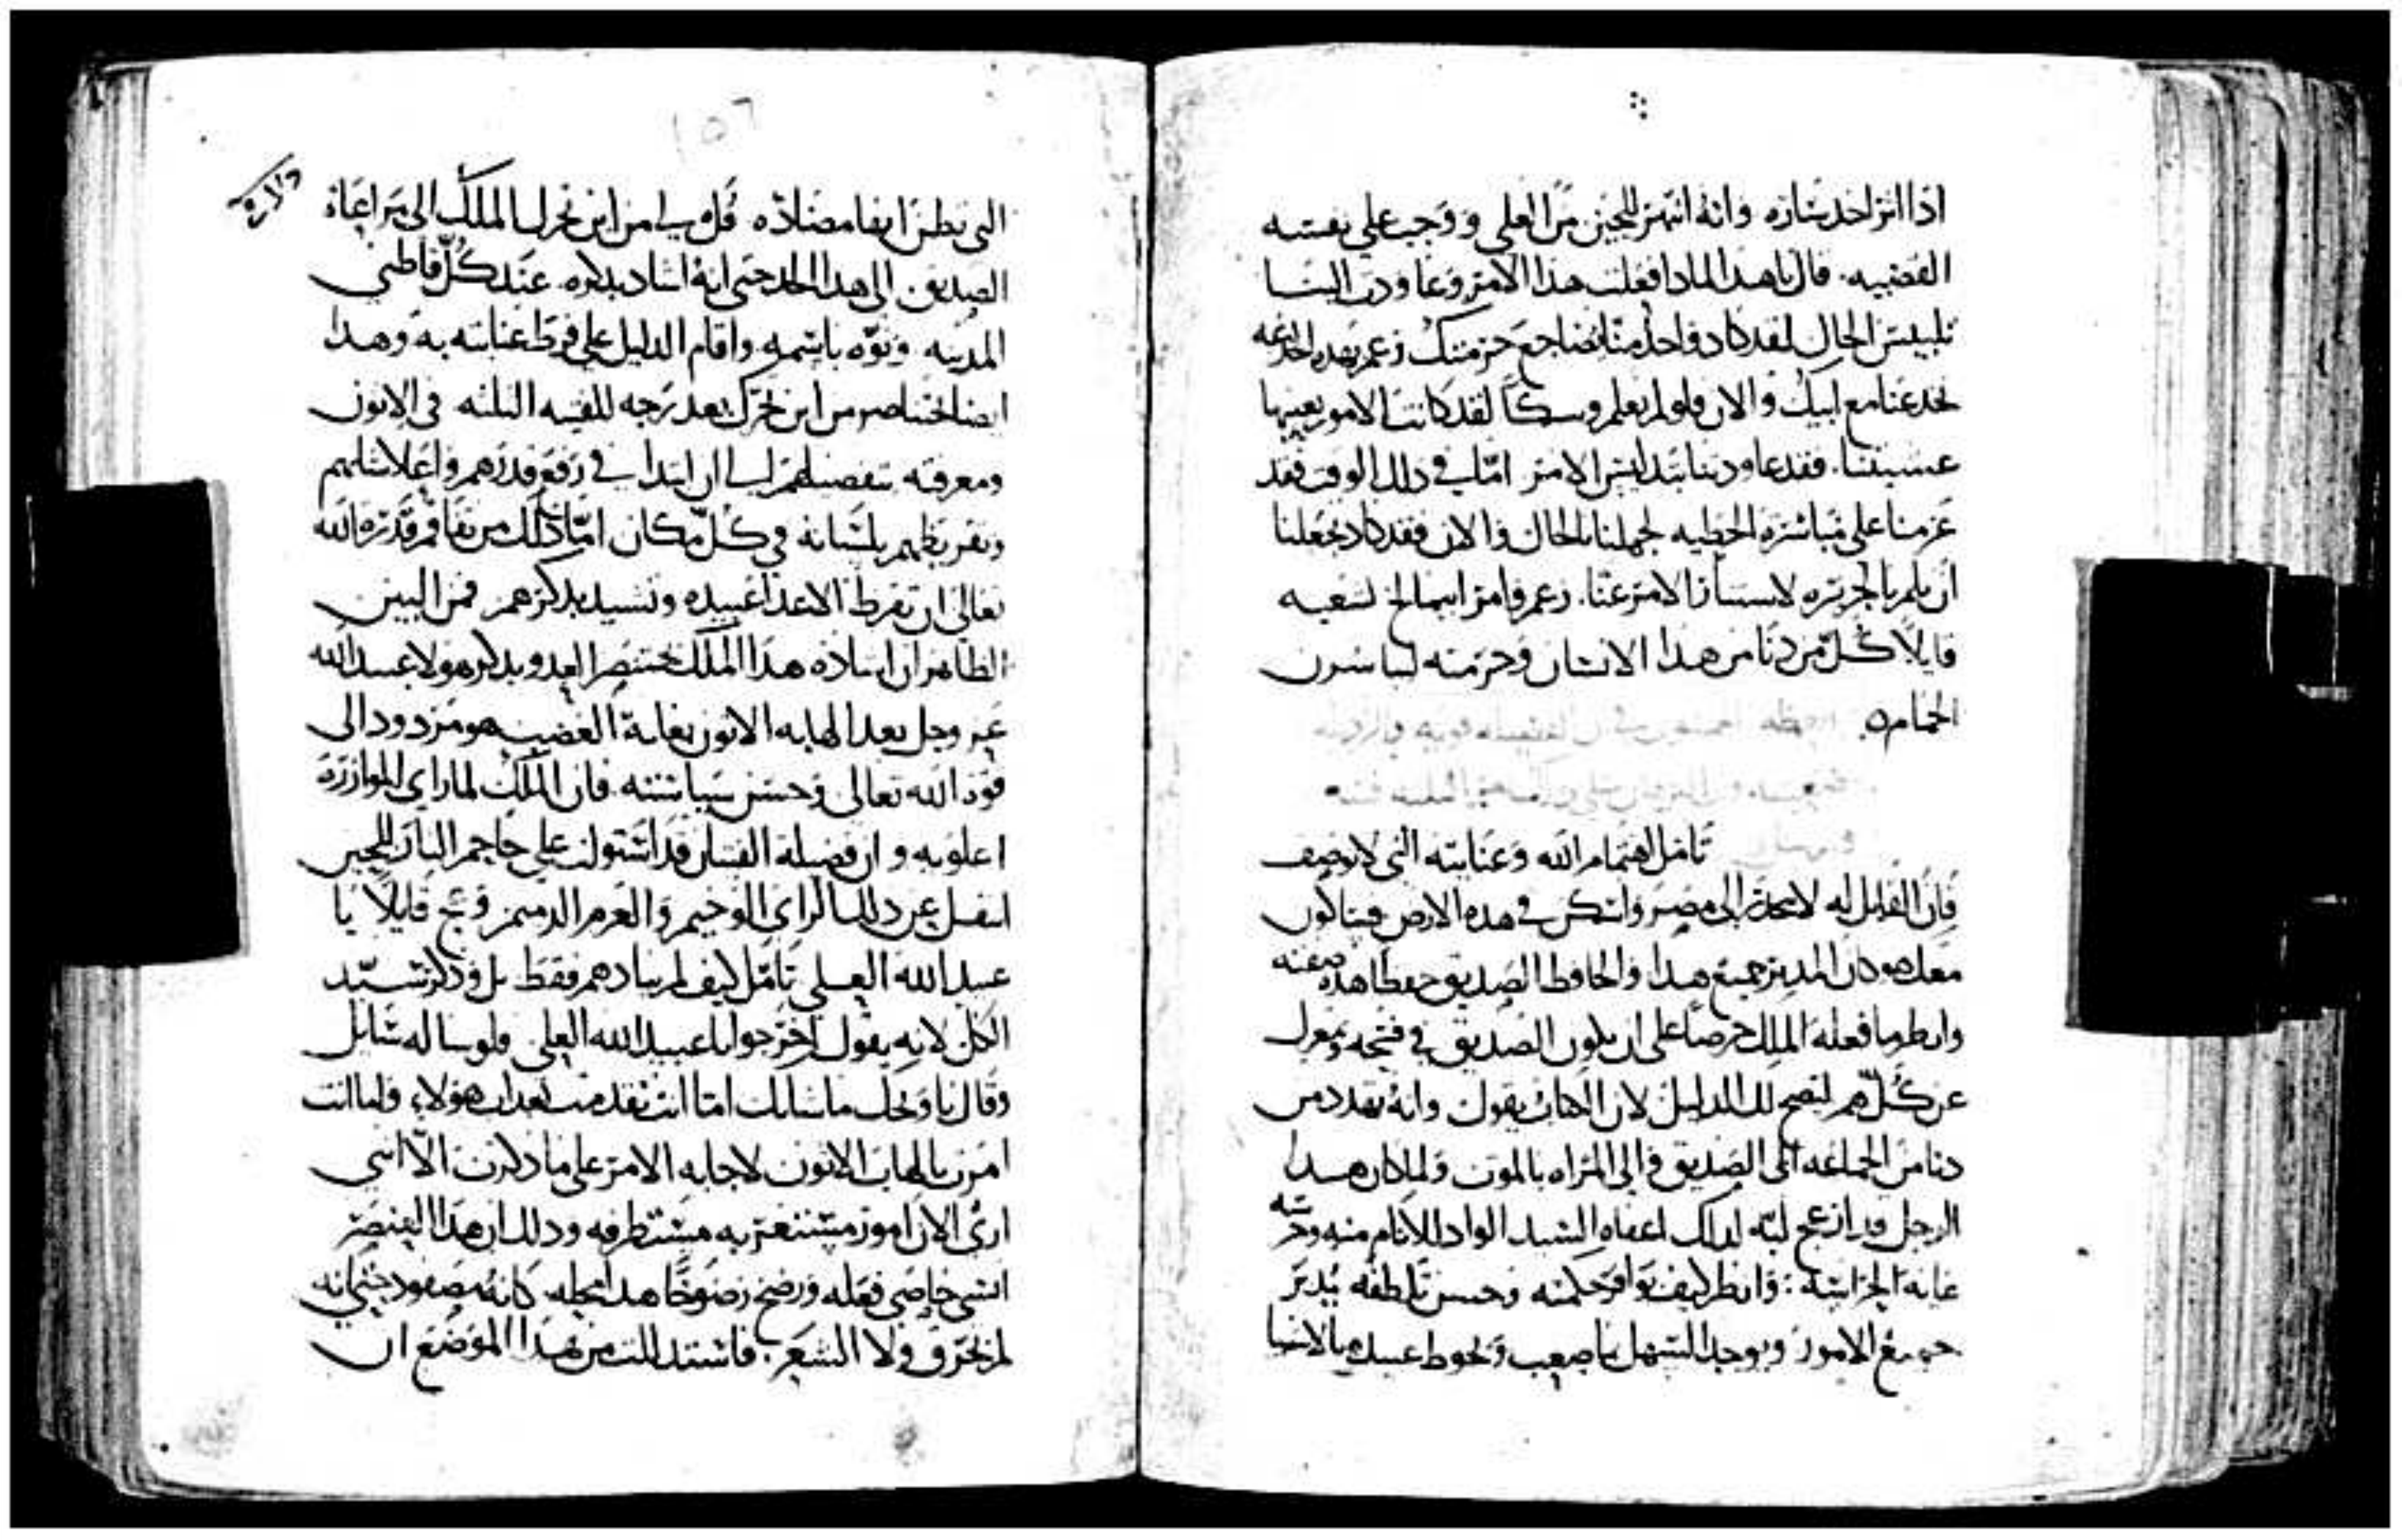 اذا انزاحد بناره وانه انتهز للحين من العلى ووجب على نفسه
القضيه. قال ياهدا لمادا فعلت هذا الامر وعاودت الينا
تلبيس الحال لقد كاد واحد منا يضاجع حرمتك زعم بهده الخدعه
خدعتنا مع ابيك والان فلو لم يعلم وسكا لقد كانت الامور بعينها
عسيتنا. فقد عاودتنا بتدليس الامر امّا في دلك الوقت فقد
عزمنا على مباشرة الخطيه لجهلنا بالحال والان فقد كاد يجعلنا
ان نلم بالجريره لاستار الامر عنا. زعم وامر ابيمالخ لشعبه
قايلًا كلّ من دنا من هدا الانسان وحرمته ليباشرن
الحمام
تامل اهتمام الله وعنايته التى لا توصف
فان القايل له لا تحدر الى مصر واسكن في هده الارض فساكون
معك هو كان المدبر جميع هدا والحافظ الصديق حفظا هده صفته
وانظر ما فعله الملك حرصا على ان يكون الصديق في فسحه وبمعزل
عن كلّ هم لتصح لك الدليل لان الكتاب يقول وانه تهدد من
دنا من الجماعه الى الصديق والى المراه بالموت ولما كان هدا
الرجل قد ازعج لبّه لدلك اعفاه السيد الواد للانام منه وحرسه
غايه الحراسة: وانظر كيف توافر حكمته وحسن تلطفه يُدبر
جميع الامور ويوجد السهل ما صعب ويحوط عبيده بالاشيا
التي نظن انها مضادّه قل لي من اين تحرك الملك الى مراعاة
الصديق الى هدا الحد حتى انه اشاد بدكره عند كلّ قاطني
المدينه ونوّه باسمه واقام الدليل على فرط عنايته به وهدا
ايضا بختناصر من اين تحرك بعد زجه للفتيه الثلثه في الاتون
ومعرفته بتفضيلهم الى ان ابتدا في رفع قدرهم واعلا شانهم
وتقريظهم بلسانه في كلّ مكان امّا دلك من تفاقم قدرة الله
تعالى ان تقرظ الاعدا عبيده وتشيد بدكرهم فمن البين
الظاهر ان اشادة هدا الملك بختنصر العدو بدكر هولا عبيد الله
عز وجل بعد الهابه الاتون بغاية الغضب هو مردود الى
قوة الله تعالى وحسن سياسته فان الملك لما راى الموازره
العلويه وان فضيلة الفتيان قد استولت على جاحم النار للحين
انتقل عن دلك الراى الوخيم والعزم الدميم وعج قايلًا يا
عبيد الله العلي تامّل كيف لم يناد هم فقط بل ودكر سيّد
الكلّ لانه يقول اخرجوا يا عبيد الله العلي فلو ساله سايل
وقال يا ويحك ما شانك امّا انت تقدمت بعداب هولاء واما انت
امرت بالهاب الاتون لاجابه الامر على ما دكرت الّا انني
ارى الان امور مستغربه مستطرفه ودلك ان هدا العنصر
انسى خاصي فعله ورضخ رضوخًا هدا محله كانه مصفود حتى انه
لم يحترق ولا الشعر. فاستدللت من هدا الموضع ان